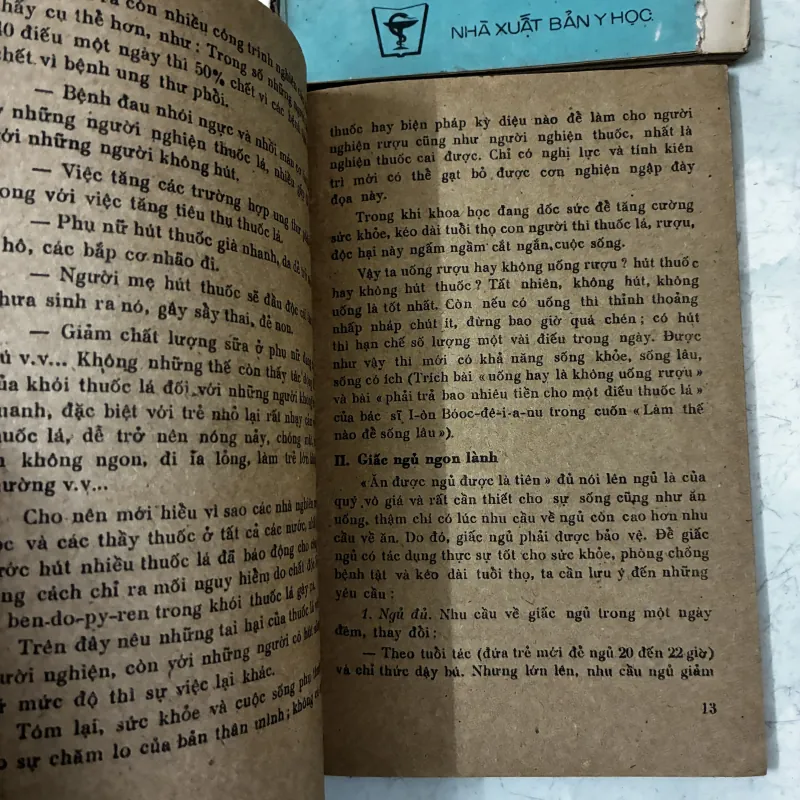 NHÀ XUẤT BẢN Y HỌC
ra còn nhiều công trình
hấy cụ thể hơn, như : Trong số những
10 điếu một ngày thì 50% chết vì các bệnh
chết vì bệnh ung thư phổi.
— Bệnh đau nhói ngực và nhồi máu cơ
những người nghiện thuốc lá, nhiều gấp
với những người không hút.
— Việc tăng các trường hợp ung thư
ong với việc tăng tiêu thụ thuốc lá.
— Phụ nữ hút thuốc già nhanh, da dẻ
hô, các bắp cơ nhão đi.
— Người mẹ hút thuốc sẽ đầu độc
hưa sinh ra nó, gây sầy thai, đẻ non.
— Giảm chất lượng sữa ở phụ nữ
ú v.v... Không những thế còn thấy tác
ủa khói thuốc lá đối với những người
uanh, đặc biệt với trẻ nhỏ lại rất nhạy
huốc lá, dễ trở nên nóng nảy, chóng
không ngon, đi ỉa lỏng, làm trẻ lớn
hường v.v...
Cho nên mới hiểu vì sao các nhà
ọc và các thầy thuốc ở tất cả các nước,
ước hút nhiều thuốc lá đã báo động cho
ng cách chỉ ra mối nguy hiểm do chất độc
ben-do-py-ren trong khói thuốc lá gây ra.
Trên đây nêu những tai hại của thuốc lá
gười nghiện, còn với những người có hút
mức độ thì sự việc lại khác.
Tóm lại, sức khỏe và cuộc sống phụ
sự chăm lo của bản thân mình; không
thuốc hay biện pháp kỳ diệu nào để làm cho người
nghiện rượu cũng như người nghiện thuốc, nhất là
nghiện thuốc cai được. Chỉ có nghị lực và tính kiên
trì mới có thể gạt bỏ được cơn nghiện ngập đày
đọa này.
Trong khi khoa học đang dốc sức để tăng cường
sức khỏe, kéo dài tuổi thọ con người thì thuốc lá, rượu,
độc hại này ngấm ngầm cắt ngắn cuộc sống.
Vậy ta uống rượu hay không uống rượu ? hút thuốc
hay không hút thuốc ? Tất nhiên, không hút, không
uống là tốt nhất. Còn nếu có uống thì thỉnh thoảng
nhấp nháp chút ít, đừng bao giờ quá chén ; có hút
thì hạn chế số lượng một vài điếu trong ngày. Được
như vậy thì mới có khả năng sống khỏe, sống lâu,
sống có ích (Trích bài « uống hay là không uống rượu »
và bài « phải trả bao nhiêu tiền cho một điếu thuốc lá »
của bác sĩ I-ôn Bóoc-đê-i-a-nu trong cuốn « Làm thế
nào để sống lâu »).
II. Giấc ngủ ngon lành
« Ăn được ngủ được là tiên » đủ nói lên ngủ là của
quý vô giá và rất cần thiết cho sự sống cũng như ăn
uống, thậm chí có lúc nhu cầu về ngủ còn cao hơn nhu
cầu về ăn. Do đó, giấc ngủ phải được bảo vệ. Để giấc
ngủ có tác dụng thực sự tốt cho sức khỏe, phòng chống
bệnh tật và kéo dài tuổi thọ, ta cần lưu ý đến những
yêu cầu :
1. Ngủ đủ. Nhu cầu về giấc ngủ trong một ngày
đêm, thay đổi :
— Theo tuổi tác (đứa trẻ mới đẻ ngủ 20 đến 22 giờ)
và chỉ thức dậy bú. Nhưng lớn lên, nhu cầu ngủ giảm
13